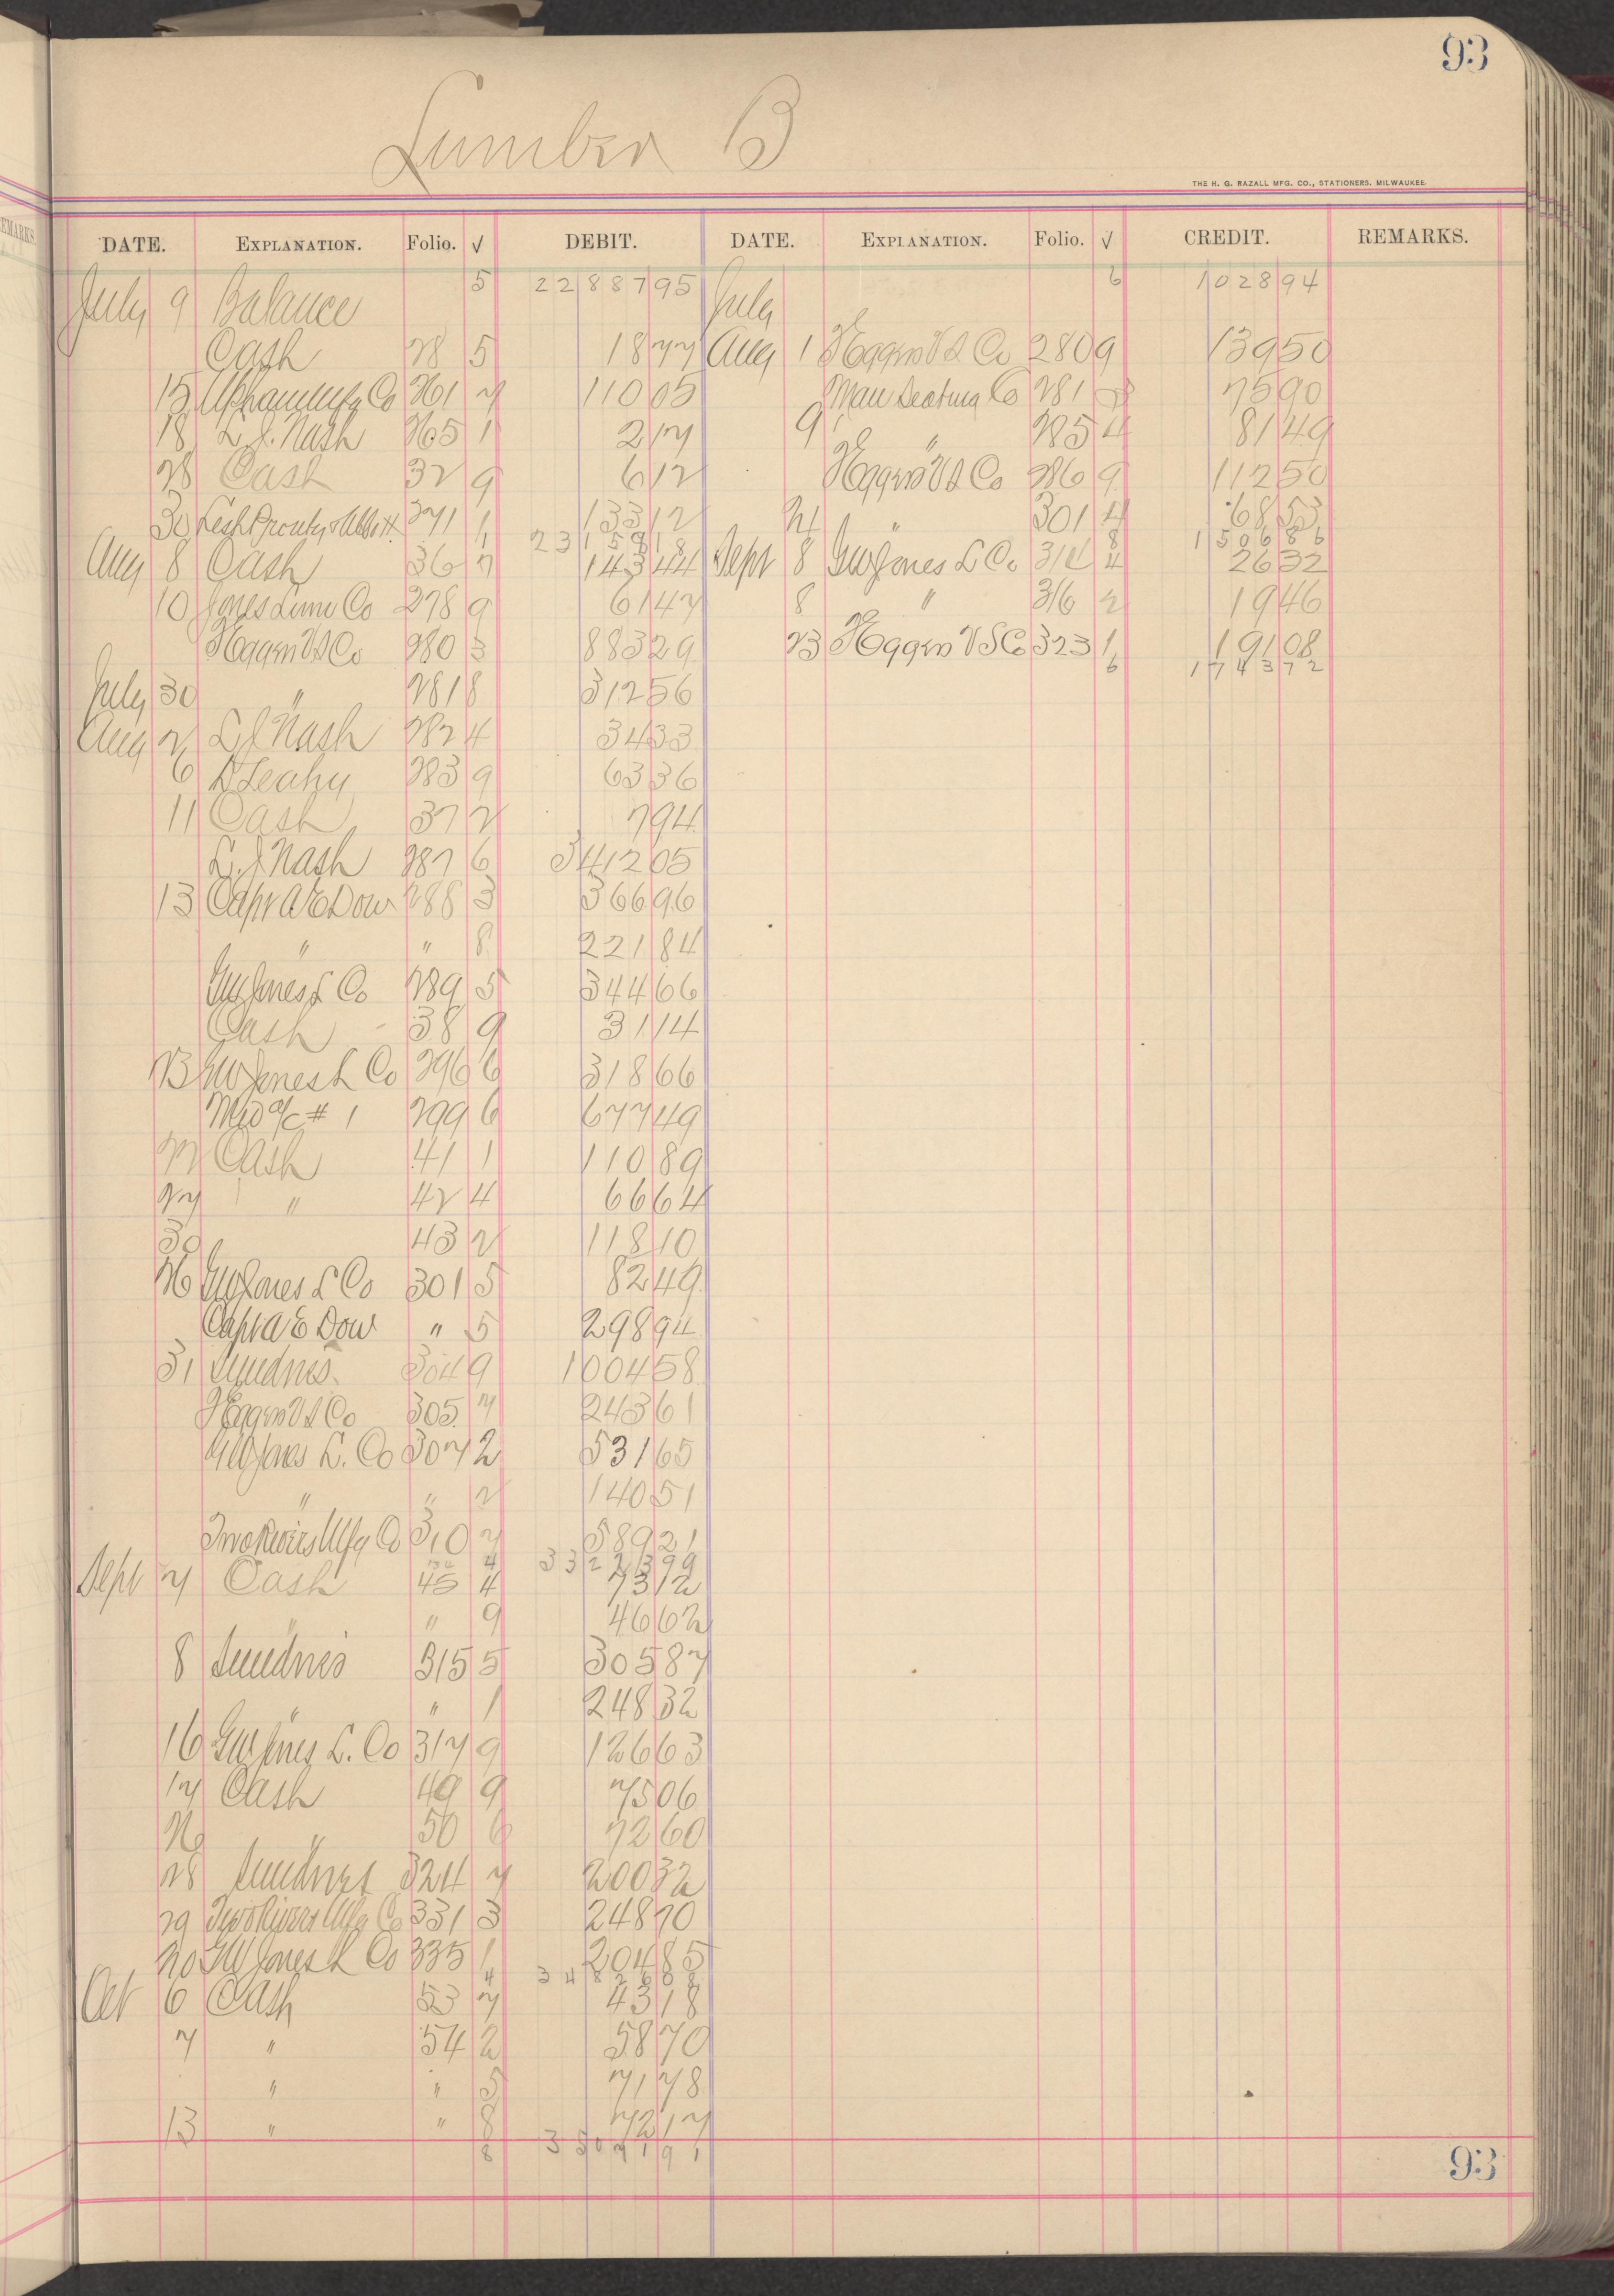 93
Lumber B
THE H. G. RAZALL MFG. CO., STATIONERS, MILWAUKEE.
DATE. EXPLANATION. Folio. √ DEBIT. DATE. EXPLANATION. Folio. √ CREDIT. REMARKS.
July 9 Balance 5 22887 95 July 6 1028 94
Cash 28 5 18 77 Aug 1 T Eggers V S Co 280 9 139 50
15 Upham Mfg Co 261 7 110 05 Man Seating Co 281 75 90
18 L. J. Nash 265 1 2 17 9 " 285 4 81 49
28 Cash 32 9 6 12 T Eggers V S Co 286 9 112 50
30 Lesh Prouty & Abbott 271 1 133 12 24 " 301 4 68 53
1 23158 18 8 1506 86
Aug 8 Cash 36 7 143 44 Sept 8 GW Jones L Co 314 4 26 32
10 Jones Lum Co 278 9 61 47 8 " 316 2 19 46
T Eggers V S Co 280 3 883 29 23 T Eggers V S Co 323 1 191 08
6 1743 72
July 30 " 281 8 312 56
Aug 2 L J Nash 282 4 34 33
6 D Leahy 283 9 63 36
11 Cash 37 2 7 94
L. J Nash 287 6 3412 05
13 Capt A E Dow 288 3 366 96
" " 8 221 84
GW Jones L Co 289 5 344 66
Cash 38 9 31 14
23 GW Jones L Co 296 6 318 66
Mdse a/c # 1 299 6 677 49
22 Cash 41 1 110 89
27 " 42 4 66 64
30 43 2 118 10
26 GW Jones L Co 301 5 82 49
Capt A E Dow " 5 298 94
31 Sundries 304 9 1004 58
T Eggers V S Co 305 7 243 61
GW Jones L. Co 307 2 531 65
" " 2 140 51
Two Rivers Mfg Co 310 7 589 21
4 33223 99
Sept 7 Cash 45 4 73 12
" " 9 46 62
8 Sundries 315 5 305 87
" " 1 248 32
16 GW Jones L. Co 317 9 126 63
17 Cash 49 9 75 06
26 " 50 6 72 60
28 Sundries 324 7 200 32
29 Two Rivers Mfg Co 331 3 248 70
20 GW Jones L Co 335 1 204 85
4 34826 08
Oct 6 Cash 53 7 43 18
7 " 54 2 58 70
" " 5 71 78
13 " " 8 72 17
8 35071 91
93